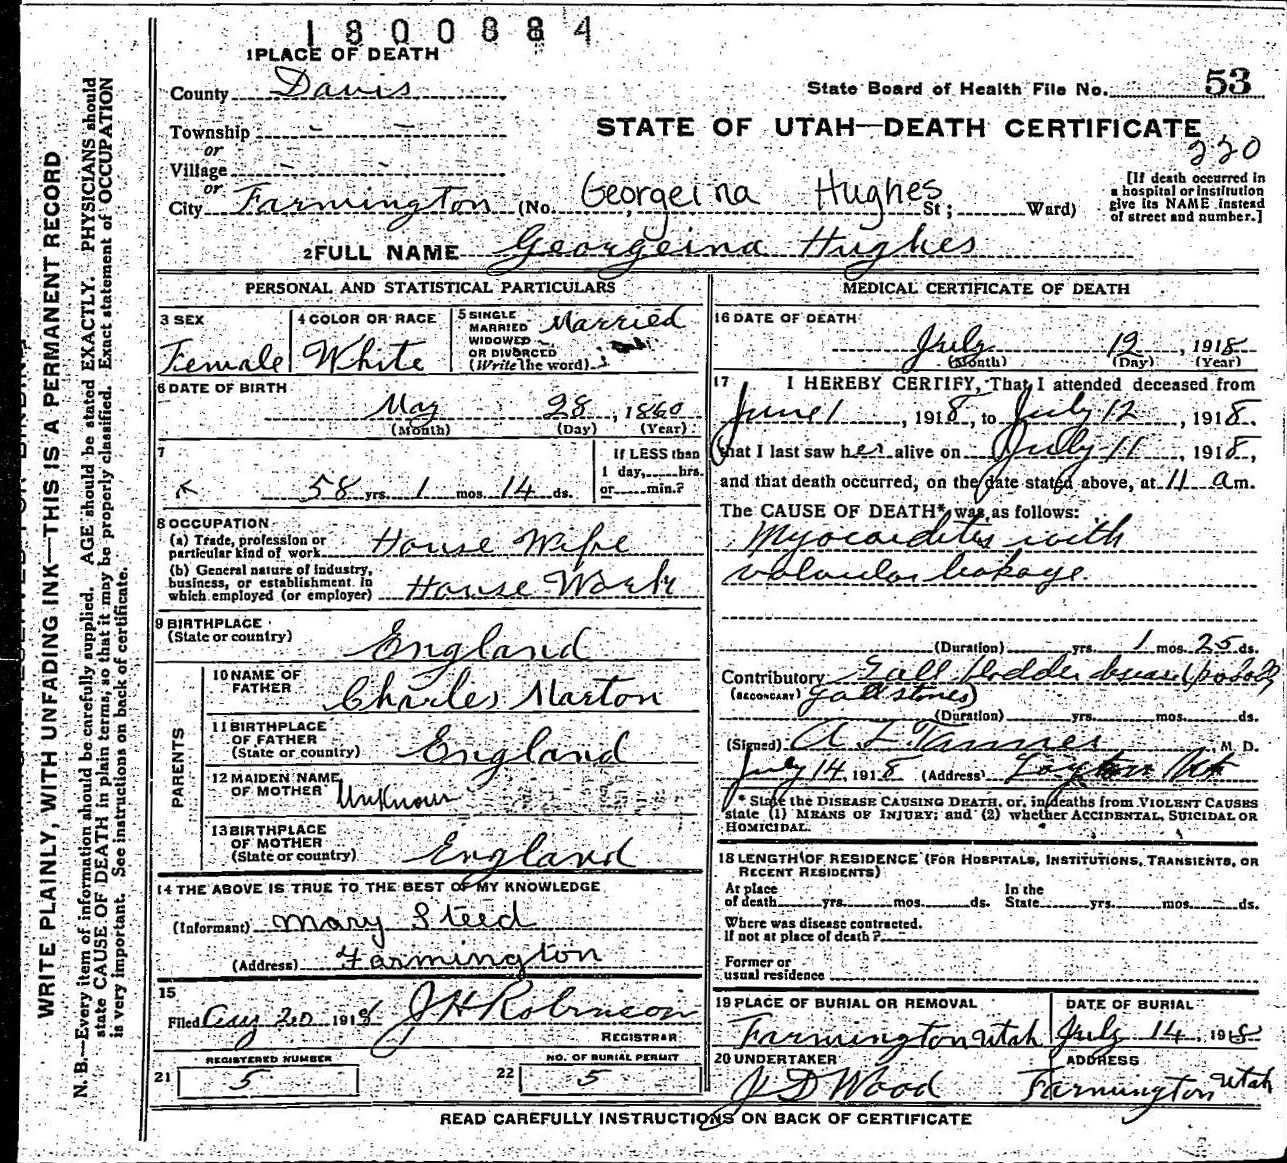 1800884
1 PLACE OF DEATH
County Davis
State Board of Health File No. 53
Township
STATE OF UTAH—DEATH CERTIFICATE
or
220
Village
or
City Farmington (No. Georgeina Hughes St; Ward)
[If death occurred in
a hospital or institution
give its NAME instead
of street and number.]
2 FULL NAME Georgeina Hughes
PERSONAL AND STATISTICAL PARTICULARS
3 SEX
Female
4 COLOR OR RACE
White
5 SINGLE
MARRIED
WIDOWED
OR DIVORCED
(Write the word)
Married
6 DATE OF BIRTH
May 28, 1860
(Month) (Day) (Year)
7
58 yrs. 1 mos. 14 ds.
If LESS than
1 day, hrs.
or min.?
8 OCCUPATION
(a) Trade, profession or
particular kind of work House Wife
(b) General nature of industry,
business, or establishment in
which employed (or employer) House Work
9 BIRTHPLACE
(State or country)
England
PARENTS
10 NAME OF
FATHER
Charles Marton
11 BIRTHPLACE
OF FATHER
(State or country) England
12 MAIDEN NAME
OF MOTHER Unknown
13 BIRTHPLACE
OF MOTHER
(State or country) England
14 THE ABOVE IS TRUE TO THE BEST OF MY KNOWLEDGE
(Informant) Mary Steed
(Address) Farmington
15
Filed Aug 20 1918 J H Robinson
REGISTRAR
REGISTERED NUMBER
21 5
NO. OF BURIAL PERMIT
22 5
MEDICAL CERTIFICATE OF DEATH
16 DATE OF DEATH
July 12, 1918
(Month) (Day) (Year)
17 I HEREBY CERTIFY, That I attended deceased from
June 1, 1918, to July 12, 1918.
that I last saw her alive on July 11, 1918,
and that death occurred, on the date stated above, at 11 am.
The CAUSE OF DEATH* was as follows:
Myocarditis with
valvular leakage
(Duration) yrs. 1 mos. 25 ds.
Contributory Gall bladder disease (probably
(SECONDARY) gall stones)
(Duration) yrs. mos. ds.
(Signed) A L Tanner, M. D.
July 14, 1918 (Address) Layton Ut
* State the DISEASE CAUSING DEATH, or, in deaths from VIOLENT CAUSES
state (1) MEANS OF INJURY; and (2) whether ACCIDENTAL, SUICIDAL OR
HOMICIDAL.
18 LENGTH OF RESIDENCE (FOR HOSPITALS, INSTITUTIONS, TRANSIENTS, OR
RECENT RESIDENTS)
At place
of death yrs. mos. ds.
In the
State yrs. mos. ds.
Where was disease contracted.
if not at place of death?
Former or
usual residence
19 PLACE OF BURIAL OR REMOVAL
Farmington Utah
DATE OF BURIAL
July 14, 1918
20 UNDERTAKER
J D Wood
ADDRESS
Farmington Utah
READ CAREFULLY INSTRUCTIONS ON BACK OF CERTIFICATE
WRITE PLAINLY, WITH UNFADING INK—THIS IS A PERMANENT RECORD
N. B.—Every item of information should be carefully supplied. AGE should be stated EXACTLY. PHYSICIANS should
state CAUSE OF DEATH in plain terms, so that it may be properly classified. Exact statement of OCCUPATION
is very important. See instructions on back of certificate.